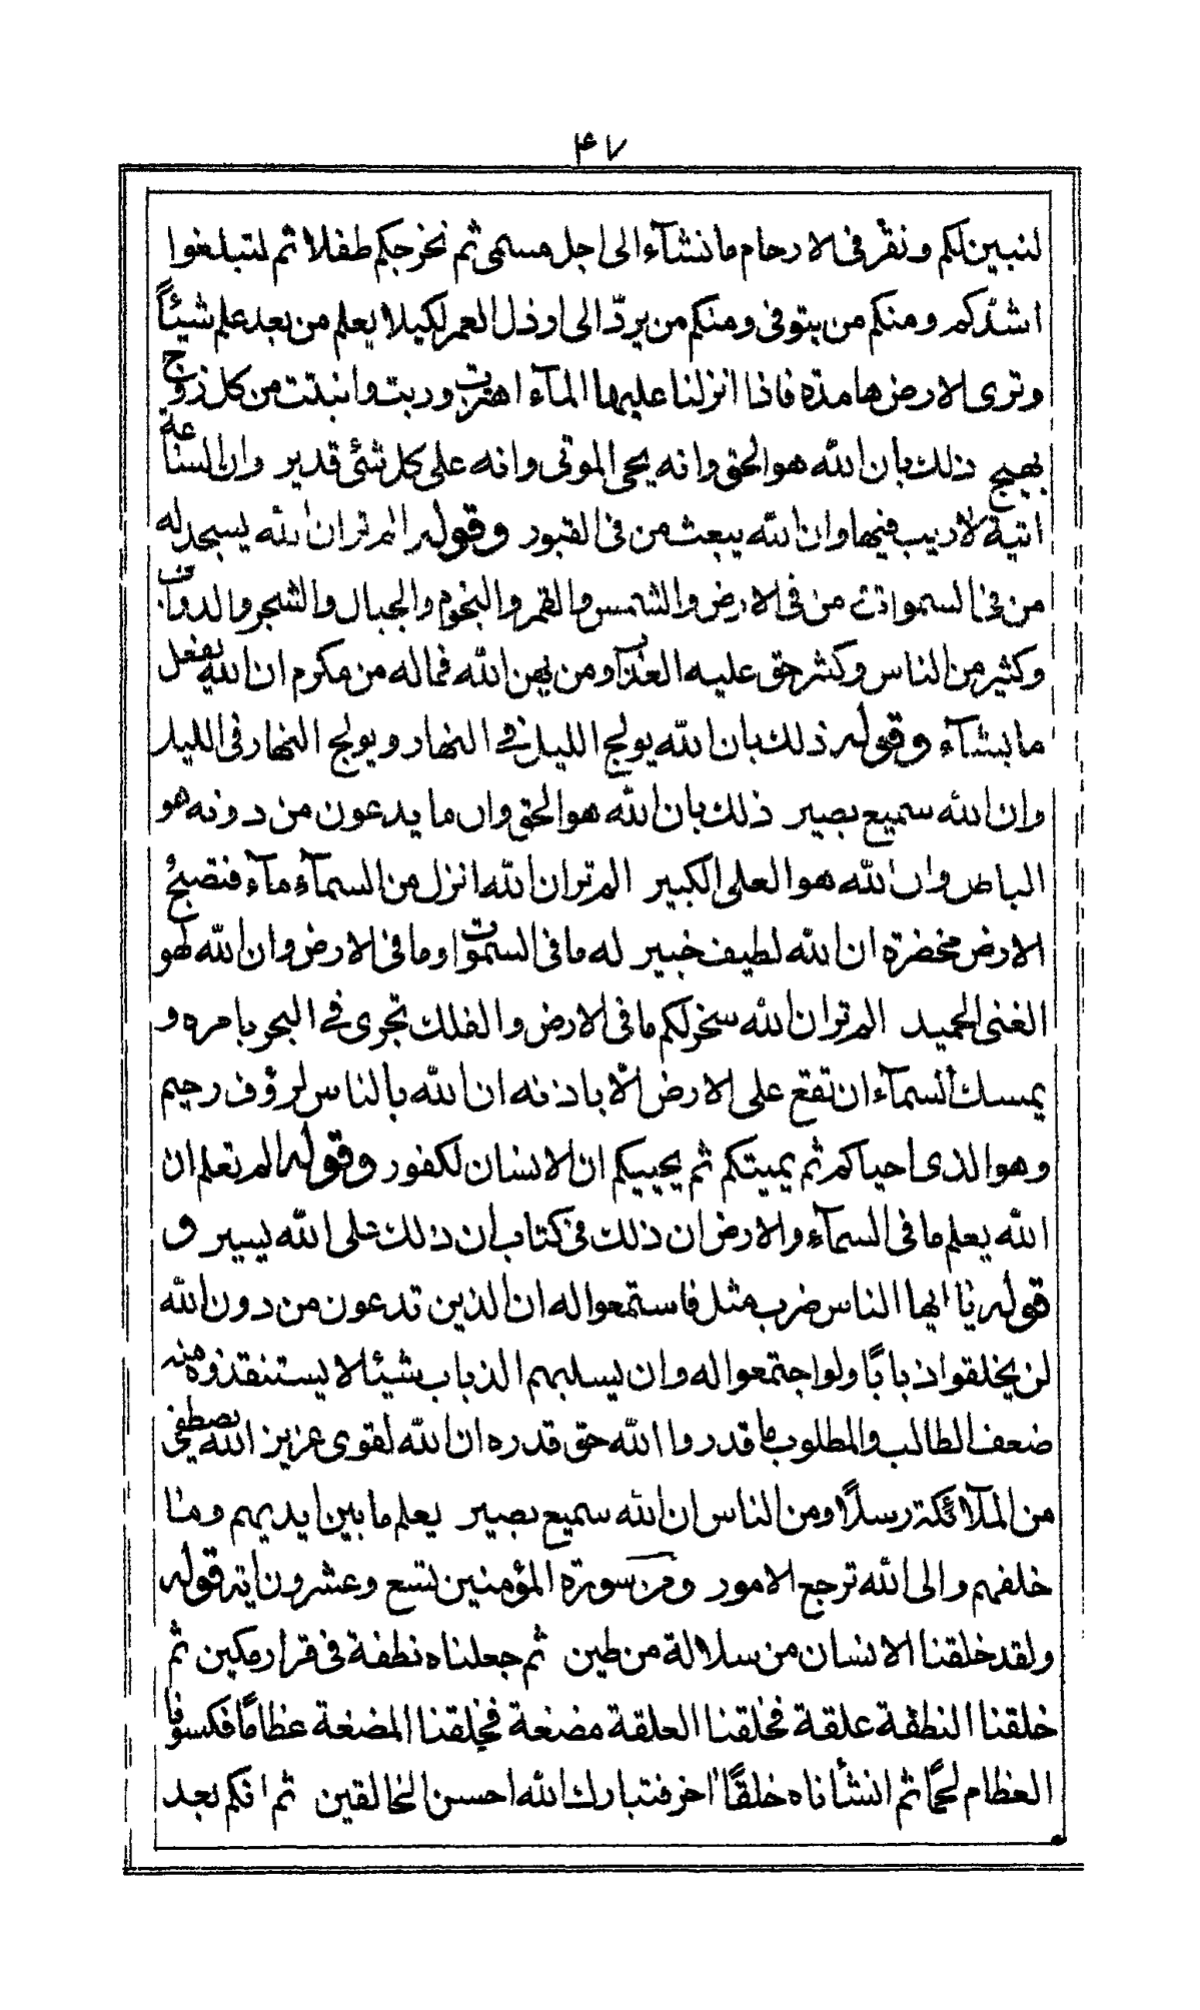 ۴۷
لنبین لکم و نقر فی الارحام ما نشآء الی اجل مسمی ثم نخرجکم طفلا ثم لتبلغوا
اشدکم و منکم من یتوفی و منکم من یردّ الی ارذل العمر لکیلا یعلم من بعد علم شیئًا
و تری الارض هامدة فاذا انزلنا علیها المآء اهتزت و ربت و انبتت من کل زوج
بهیج ذلک بان الله هو الحق و انه یحی الموتی و انه علی کل شئ قدیر و ان الساعة
اتیة لاریب فیها و ان الله یبعث من فی القبور و قوله الم تر ان الله یسجد له
من فی السموات من فی الارض و الشمس و القمر و النجوم و الجبال و الشجر و الدوآب
و کثیر من الناس و کثر حق علیه العذاب و من یهن الله فماله من مکرم ان الله یفعل
ما یشآء و قوله ذلک بان الله یولج اللیل فی النهار و یولج النهار فی اللیل
و ان الله سمیع بصیر ذلک بان الله هو الحق و ان ما یدعون من دونه هو
الباطل و ان الله هو العلی الکبیر الم تر ان الله انزل من السمآء مآء فتصبح
الارض مخضرة ان الله لطیف خبیر له ما فی السموات و ما فی الارض و ان الله لهو
الغنی الحمید الم تر ان الله سخر لکم ما فی الارض و الفلک تجری فی البحر بامره و
یمسک السمآء ان تقع علی الارض الّا باذنه ان الله بالناس لرؤف رحیم
و هو الذی احیاکم ثم یمیتکم ثم یحییکم ان الانسان لکفور و قوله الم تعلم ان
الله یعلم ما فی السمآء و الارض ان ذلک فی کتاب ان ذلک علی الله یسیر و
قوله یا ایها الناس ضرب مثل فاستمعوا له ان الذین تدعون من دون الله
لن یخلقوا ذبابًا و لو اجتمعوا له و ان یسلبهم الذباب شیئا لا یستنقذوه منه
ضعف الطالب و المطلوب ما قدروا الله حق قدره ان الله لقوی عزیز الله یصطفی
من المآلئکة رسلًا و من الناس ان الله سمیع بصیر یعلم ما بین ایدیهم و ما
خلفهم و الی الله ترجع الامور و من سورة المؤمنین تسع و عشرون ایة قوله
و لقد خلقنا الانسان من سلالة من طین ثم جعلناه نطفة فی قرار مکین ثم
خلقنا النطفة علقة فخلقنا العلقة مضغة فخلقنا المضغة عظامًا فکسونا
العظام لحمًا ثم انشأناه خلقًا اخر فتبارک الله احسن الخالقین ثم انکم بعد